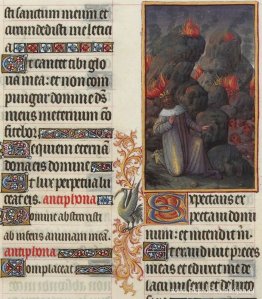 sti saccum meum et
circumdedisti me leticia
Ut cantet tibi glo
ria mea: et non com
pungar domine ds
meus in eternum con
fitebor:
Requiem eternā
dona eis domine
Et lux perpetua lu
ceat eis. antiphona
Domine abstraxisti
ab inferis animam meam.
antiphona
Complaceat
Expectans ex
pectaui domi
num: et intendit m
Et exaudiuit preces
meas et eduxit me de
lacu miserie et de luto